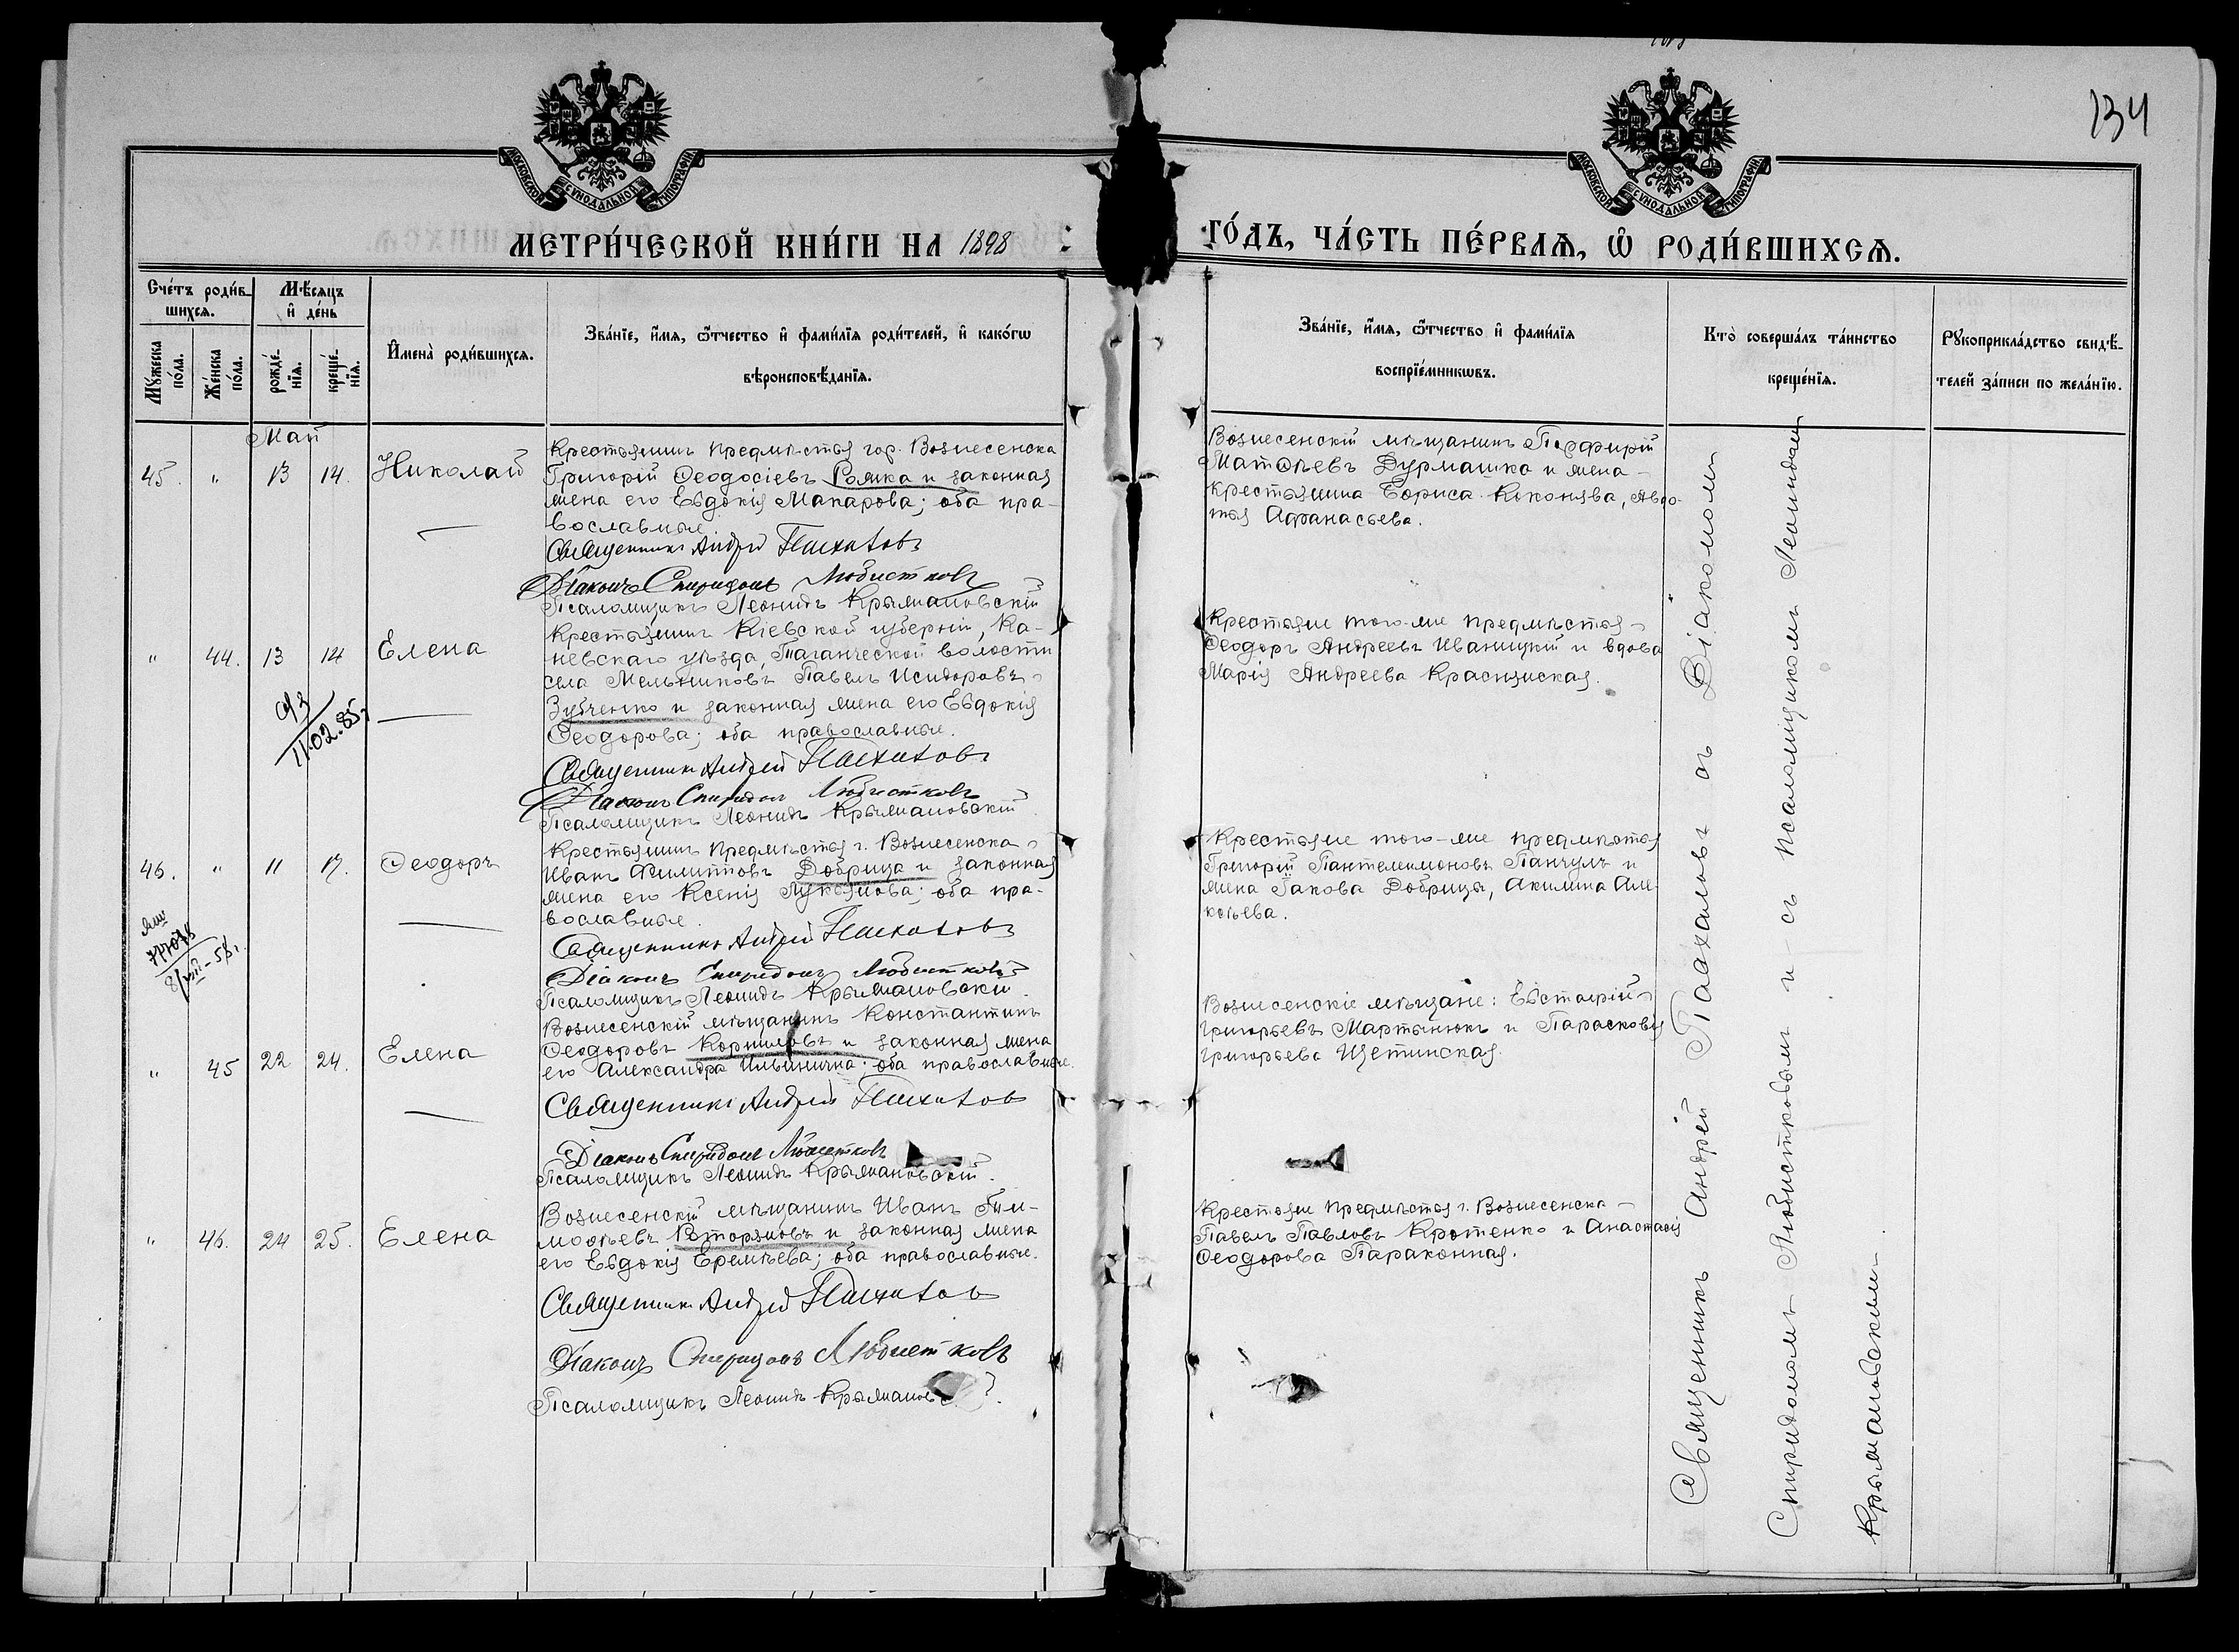 134
МОСКОВСКОЙ СѴНОДАЛЬНОЙ ТИПОГРАФІИ
МОСКОВСКОЙ СѴНОДАЛЬНОЙ ТИПОГРАФІИ
МЕТРИ́ЧЕСКОЙ КНИ́ГИ НА 1898 ГО́ДЪ, ЧА́СТЬ ПЕ́РВАѦ, Ѡ҆ РОДИ́ВШИХСѦ.
Сче́тъ роди́в-
шихсѧ.
Мꙋ́жеска
по́ла.
Же́нска
по́ла.
Мѣ́сѧцъ
и҆ де́нь
рожде́-
нїѧ.
креще́-
нїѧ.
И҆мена̀ роди́вшихсѧ.
Зва́нїе, и҆́мѧ, ѻ҆́тчество и҆ фами́лїѧ роди́телей, и҆ како́гѡ
вѣроисповѣ́данїѧ.
Зва́нїе, и҆́мѧ, ѻ҆́тчество и҆ фами́лїѧ
воспрїе́мникѡвъ.
Кто̀ соверша́лъ та́инство
креще́нїѧ.
Рꙋкоприкла́дство свидѣ́-
телей за́писи по жела́нїю.
Май
45. " 13 14. Николай
Крестьянинъ предмѣстья гор. Вознесенска
Григорій Ѳеодосіевъ Ромка и законная
жена его Евдокія Макарова; оба пра-
вославные.
Священникъ Андрей Пахаловъ
Діаконъ Спиридонъ Любистковъ
Псаломщикъ Леонидъ Крыжановскій
Вознесенскій мѣщанинъ Порфирій
Матѳѣевъ Дурмашко и жена
крестьянина Бориса Коконява, Авдо-
тья Афанасьева.
" 44. 13 14 Елена
Крестьянинъ Кіевской губерніи, Ка-
невскаго уѣзда, Таганческой волости
села Мельниковъ Павелъ Исидоровъ
Зубченко и законная жена его Евдокія
Ѳеодорова; оба православные.
Священникъ Андрей Пахаловъ
Діаконъ Спиридонъ Любистковъ
Псаломщикъ Леонидъ Крыжановскій
11.02.85
Крестьяне того-же предмѣстья
Ѳеодоръ Андреевъ Иваницкій и вдова
Марія Андреева Краснянская.
46. " 11 17. Ѳеодоръ
Крестьянинъ предмѣстья г. Вознесенска
Иванъ Филипповъ Добрица и законная
жена его Ксенія Лукьянова; оба пра-
вославные.
Священникъ Андрей Пахаловъ
Діаконъ Спиридонъ Любистковъ
Псаломщикъ Леонидъ Крыжановскій
8/VIII-58.
Крестьяне того-же предмѣстья
Григорій Пантелеимоновъ Панчулъ и
жена Іакова Добрицы, Акилина Але-
ксѣева.
" 45 22 24. Елена
Вознесенскій мѣщанинъ Константинъ
Ѳеодоровъ Корниловъ и законная жена
его Александра Ильинична; оба православные.
Священникъ Андрей Пахаловъ
Діаконъ Спиридонъ Любистковъ
Псаломщикъ Леонидъ Крыжановскій.
Вознесенскіе мѣщане: Евстафій
Григорьевъ Мартынюкъ и Парасковія
Григорьева Щетинская.
" 46. 24 25. Елена
Вознесенскій мѣщанинъ Иванъ Ти-
моѳѣевъ Вторяковъ и законная жена
его Евдокія Еремѣева; оба православные.
Священникъ Андрей Пахаловъ
Діаконъ Спиридонъ Любистковъ
Псаломщикъ Леонидъ Крыжановс
Крестьяне предмѣстья г. Вознесенска
Павелъ Павловъ Кротенко и Анастасія
Ѳеодорова Параконная.
Священникъ Андрей Пахаловъ съ Діакономъ
Спиридономъ Любистковымъ и съ псаломщикомъ Леонидомъ
Крыжановскимъ.